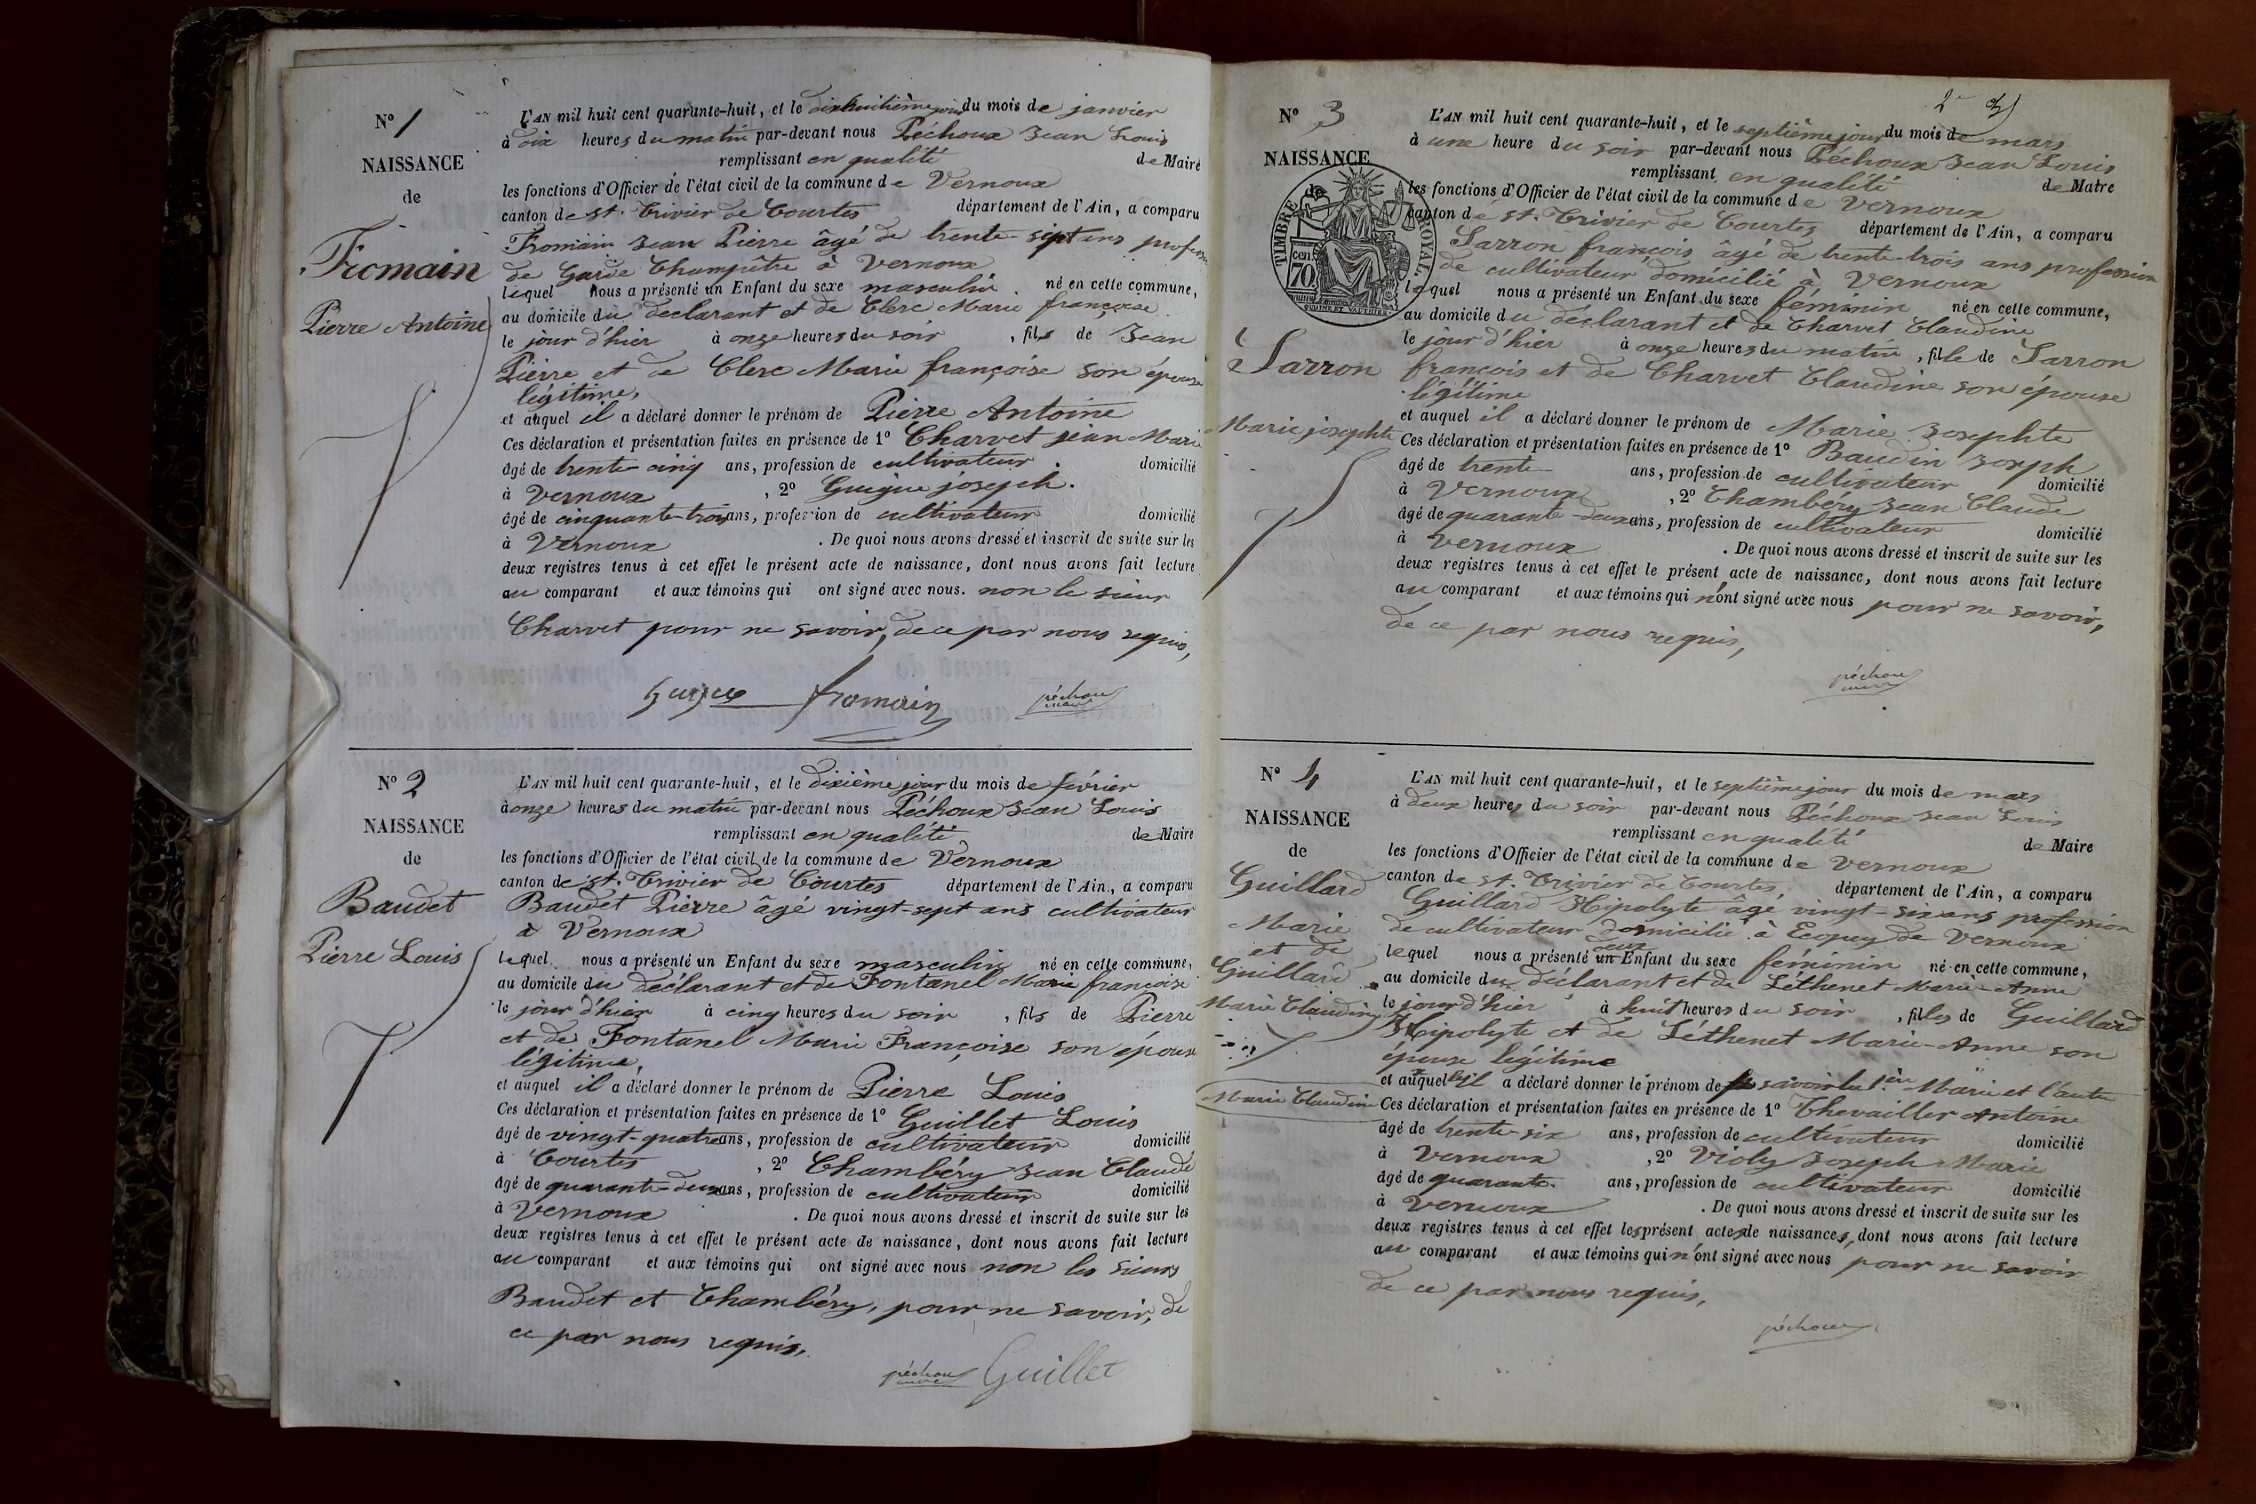 N° 1
NAISSANCE
de
Fromain
Pierre Antoine
L'AN mil huit cent quarante-huit, et le dixhuitième jour du mois de janvier
à dix heures du matin par-devant nous Péchoux Jean Louis
remplissant en qualité de Maire
les fonctions d'Officier de l'état civil de la commune de Vernoux
canton de St. Trivier de Courtes département de l'Ain, a comparu
Fromain Jean Pierre âgé de trente-sept ans profession
de Garde Champêtre à Vernoux
lequel nous a présenté un Enfant du sexe masculin né en cette commune,
au domicile du déclarant et de Clerc Marie françoise
le jour d'hier à onze heures du soir, fils de Jean
Pierre et de Clerc Marie françoise son épouse
légitime,
et auquel il a déclaré donner le prénom de Pierre Antoine
Ces déclaration et présentation faites en présence de 1° Charvet jean Marie
âgé de trente-cinq ans, profession de cultivateur domicilié
à Vernoux, 2° Guigue joseph.
âgé de cinquante-trois ans, profession de cultivateur domicilié
à Vernoux. De quoi nous avons dressé et inscrit de suite sur les
deux registres tenus à cet effet le présent acte de naissance, dont nous avons fait lecture
au comparant et aux témoins qui ont signé avec nous. non le sieur
Charvet pour ne savoir, de ce par nous requis,
guigue fromain péchoux maire
N° 2
NAISSANCE
de
Baudet
Pierre Louis
L'AN mil huit cent quarante-huit, et le dixième jour du mois de février
à onze heures du matin par-devant nous Péchoux Jean Louis
remplissant en qualité de Maire
les fonctions d'Officier de l'état civil de la commune de Vernoux
canton de St. Trivier de Courtes département de l'Ain, a comparu
Baudet Pierre âgé vingt-sept ans cultivateur
à Vernoux
lequel nous a présenté un Enfant du sexe masculin né en cette commune,
au domicile du déclarant et de Fontanel Marie françoise
le jour d'hier à cinq heures du soir, fils de Pierre
et de Fontanel Marie Françoise son épouse
légitime,
et auquel il a déclaré donner le prénom de Pierre Louis
Ces déclaration et présentation faites en présence de 1° Guillet Louis
âgé de vingt-quatre ans, profession de cultivateur domicilié
à Courtes, 2° Chambéry Jean Claude
âgé de quarante-deux ans, profession de cultivateur domicilié
à Vernoux. De quoi nous avons dressé et inscrit de suite sur les
deux registres tenus à cet effet le présent acte de naissance, dont nous avons fait lecture
au comparant et aux témoins qui ont signé avec nous non les sieurs
Baudet et Chambéry, pour ne savoir, de
ce par nous requis,
péchoux maire Guillet
2e
N° 3
NAISSANCE
de
TIMBRE ROYAL
70 cen.
Sarron
Marie josephte
L'AN mil huit cent quarante-huit, et le septième jour du mois de mars
à une heure du soir par-devant nous Péchoux Jean Louis
remplissant en qualité de Maire
les fonctions d'Officier de l'état civil de la commune de Vernoux
canton de St. Trivier de Courtes département de l'Ain, a comparu
Sarron françois âgé de trente-trois ans profession
de cultivateur domicilié à Vernoux
lequel nous a présenté un Enfant du sexe féminin né en cette commune,
au domicile du déclarant et de Charvet Claudine
le jour d'hier à onze heures du matin, fille de Sarron
françois et de Charvet Claudine son épouse
légitime
et auquel il a déclaré donner le prénom de Marie Josephte
Ces déclaration et présentation faites en présence de 1° Baudin Joseph
âgé de trente ans, profession de cultivateur domicilié
à Vernoux, 2° Chambéry Jean Claude
âgé de quarante-deux ans, profession de cultivateur domicilié
à Vernoux. De quoi nous avons dressé et inscrit de suite sur les
deux registres tenus à cet effet le présent acte de naissance, dont nous avons fait lecture
au comparant et aux témoins qui n'ont signé avec nous pour ne savoir,
de ce par nous requis,
péchoux maire
N° 4
NAISSANCE
de
Guillard
Marie
et de
Guillard
Marie Claudine
Marie Claudine
L'AN mil huit cent quarante-huit, et le septième jour du mois de mars
à deux heures du soir par-devant nous Péchoux Jean Louis
remplissant en qualité de Maire
les fonctions d'Officier de l'état civil de la commune de Vernoux
canton de St. Trivier de Courtes département de l'Ain, a comparu
Guillard Hipolyte âgé vingt-six ans profession
de cultivateur domicilié à Ecopey de Vernoux
lequel nous a présenté un deux Enfant du sexe féminin né en cette commune,
au domicile du déclarant et de Léthenet Marie-Anne
le jour d'hier à huit heures du soir, filles de Guillard
Hipolyte et de Léthenet Marie-Anne son
épouse légitime
et auquel il a déclaré donner le prénom de savoir la 1ère Marie et l'autre
Ces déclaration et présentation faites en présence de 1° Chevailler Antoine
âgé de trente-six ans, profession de cultivateur domicilié
à Vernoux, 2° Violy Joseph Marie
âgé de quarante ans, profession de cultivateur domicilié
à Vernoux. De quoi nous avons dressé et inscrit de suite sur les
deux registres tenus à cet effet les présent actes de naissances, dont nous avons fait lecture
au comparant et aux témoins qui n'ont signé avec nous pour ne savoir
de ce par nous requis,
péchoux